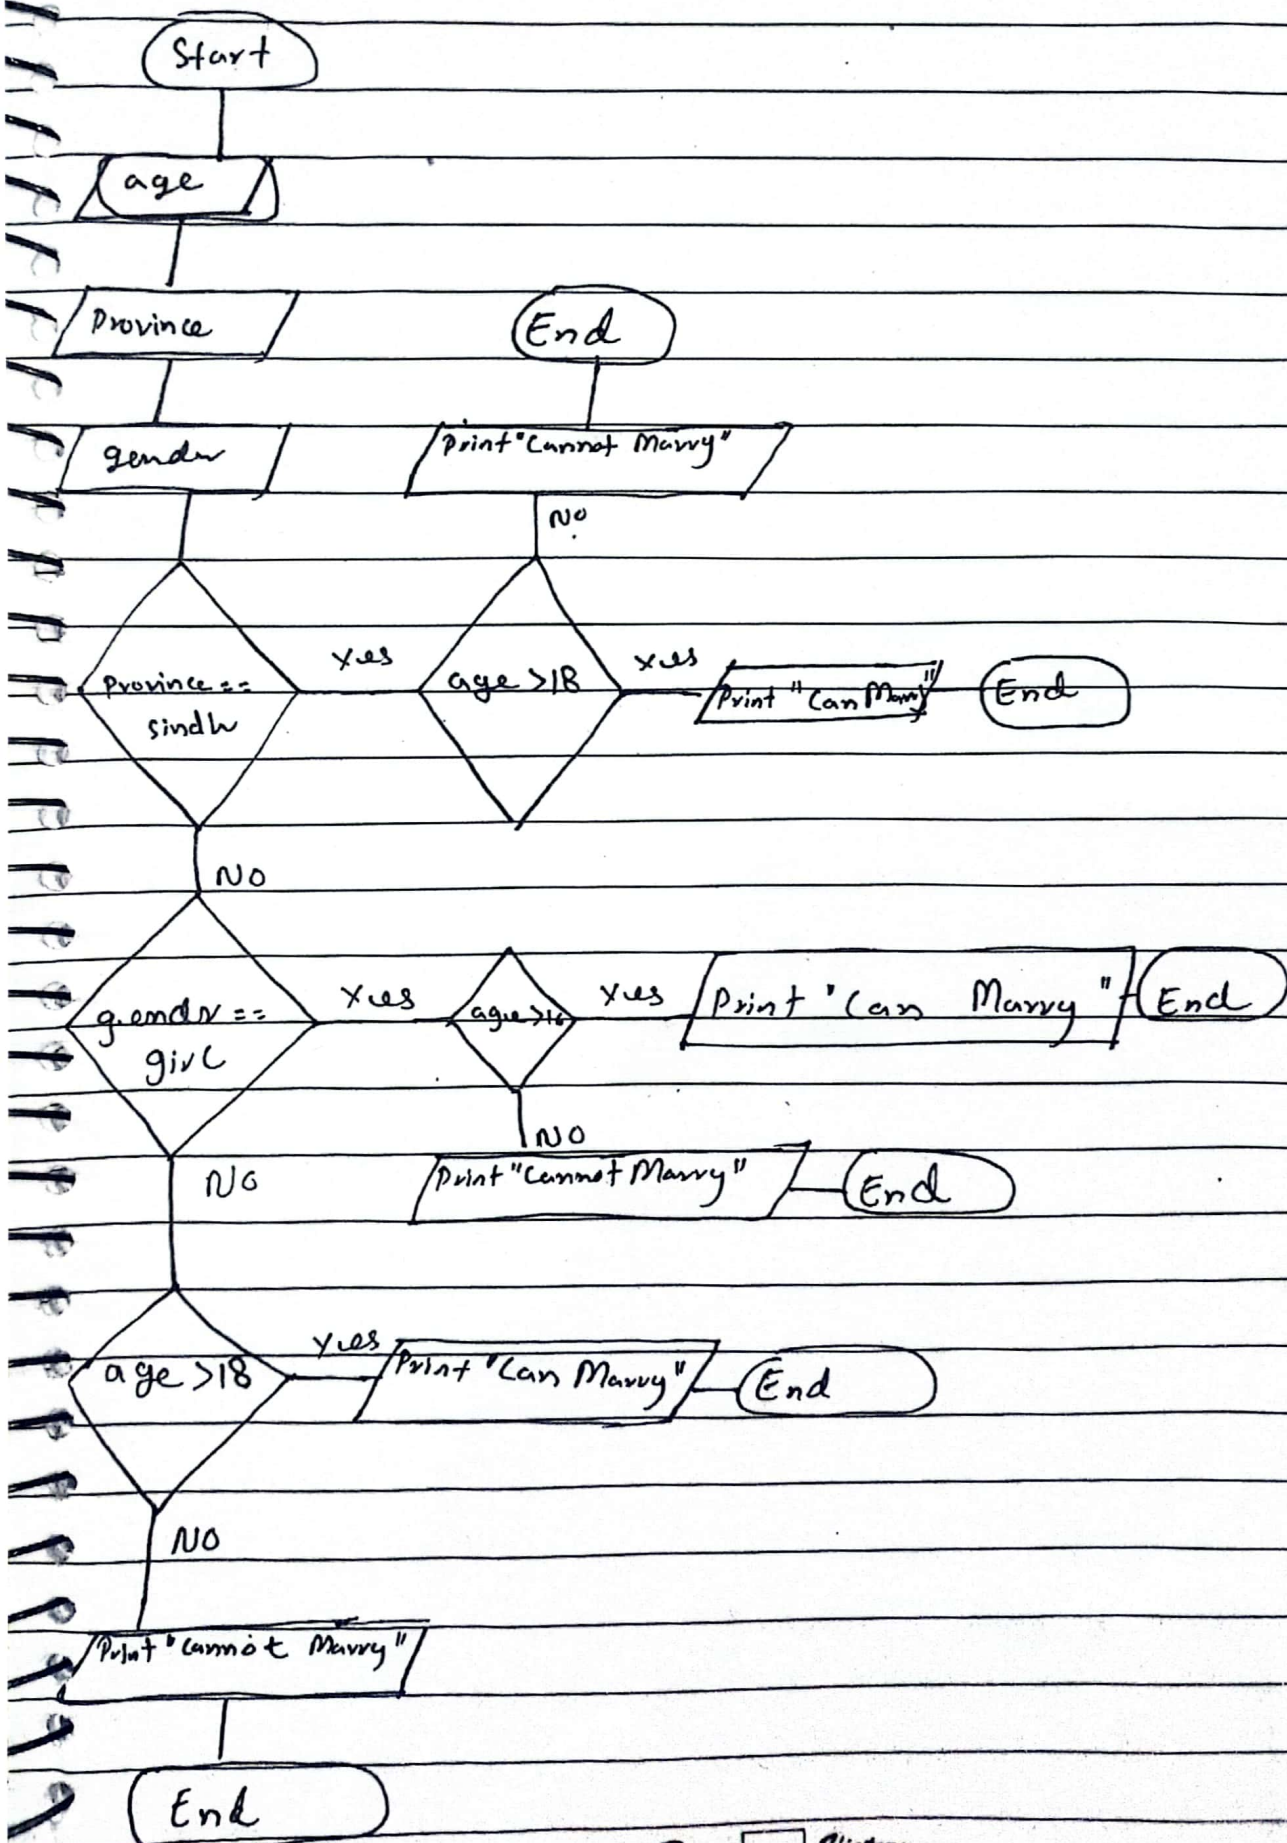 Start
age
Province
End
gender
Print "Cannot Marry"
No
Province ==
sindh
Yes
age >18
Yes
Print "Can Marry"
End
NO
gender ==
girl
Yes
age >16
Yes
Print "Can Marry"
End
NO
Print "Cannot Marry"
End
NO
age >18
Yes
Print "Can Marry"
End
NO
Print "Cannot Marry"
End